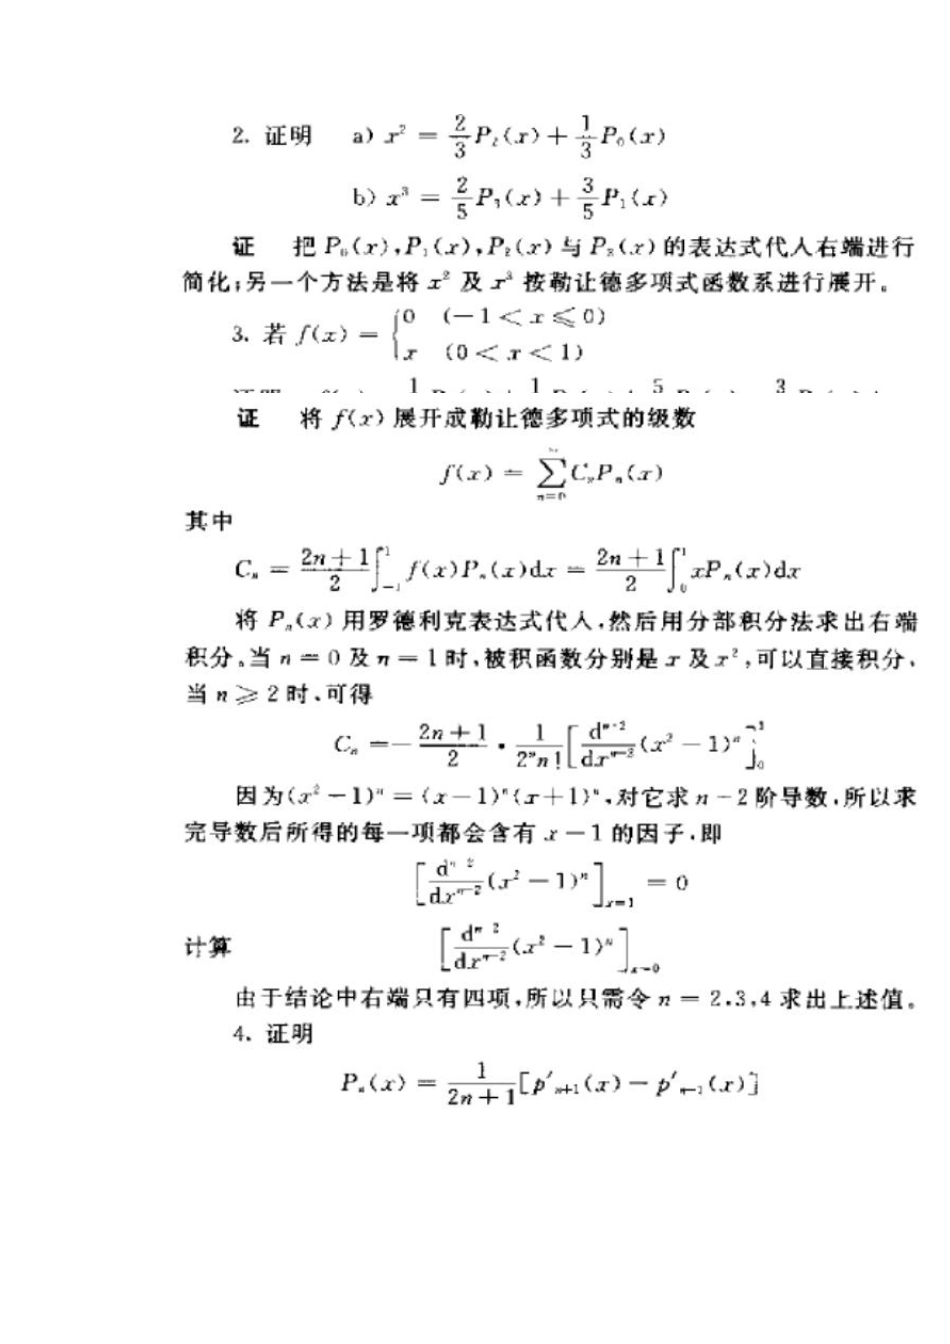 2. 证明 a) x² = 2/3 P₂(x) + 1/3 P₀(x)
b) x³ = 2/5 P₃(x) + 3/5 P₁(x)
证 把 P₀(x),P₁(x),P₂(x) 与 P₃(x) 的表达式代入右端进行
简化;另一个方法是将 x² 及 x³ 按勒让德多项式函数系进行展开。
3. 若 f(x) = { 0 (−1 < x ⩽ 0)
x (0 < x < 1)
证 将 f(x) 展开成勒让德多项式的级数
f(x) = ∑_{n=0}^{∞} CₙPₙ(x)
其中
Cₙ = (2n+1)/2 ∫_{−1}^{1} f(x)Pₙ(x)dx = (2n+1)/2 ∫_{0}^{1} xPₙ(x)dx
将 Pₙ(x) 用罗德利克表达式代入,然后用分部积分法求出右端
积分。当 n = 0 及 n = 1 时,被积函数分别是 x 及 x²,可以直接积分,
当 n ⩾ 2 时,可得
Cₙ = − (2n+1)/2 · 1/(2ⁿn!) [d^{n−2}/dx^{n−2} (x² − 1)ⁿ]₀¹
因为(x² − 1)ⁿ = (x − 1)ⁿ(x + 1)ⁿ,对它求 n − 2 阶导数,所以求
完导数后所得的每一项都会含有 x − 1 的因子,即
[d^{n−2}/dx^{n−2} (x² − 1)ⁿ]_{x=1} = 0
计算 [d^{n−2}/dx^{n−2} (x² − 1)ⁿ]_{x=0}
由于结论中右端只有四项,所以只需令 n = 2,3,4 求出上述值。
4. 证明
Pₙ(x) = 1/(2n+1) [p′ₙ₊₁(x) − p′ₙ₋₁(x)]